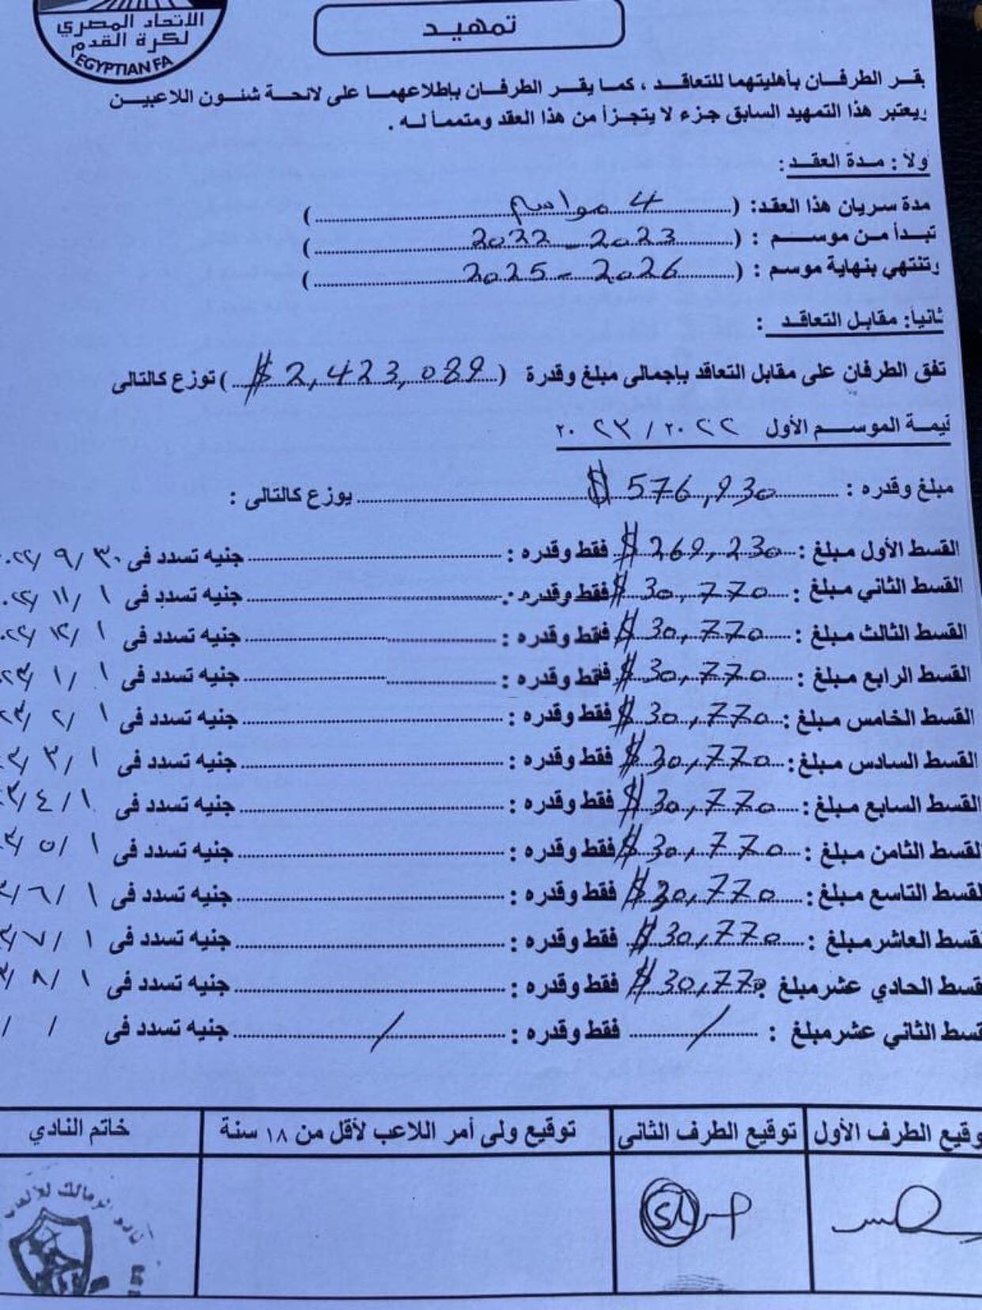 الاتحاد المصري
لكرة القدم
EGYPTIAN FA
تمهيد
يقر الطرفان بأهليتهما للتعاقد ، كما يقر الطرفان بإطلاعهما على لائحة شئون اللاعبين
ويعتبر هذا التمهيد السابق جزء لا يتجزأ من هذا العقد ومتمماً له .
أولاً : مدة العقد :
مدة سريان هذا العقد: ( 4 مواسم )
تبدأ من موسم : ( 2022 - 2023 )
وتنتهي بنهاية موسم : ( 2025 - 2026 )
ثانياً: مقابل التعاقد :
تفق الطرفان على مقابل التعاقد بإجمالى مبلغ وقدرة ( $ 2,423,089 ) توزع كالتالى
قيمة الموسم الأول ٢٠٢٢ / ٢٠٢٣
مبلغ وقدره : $ 576,930 يوزع كالتالى :
القسط الأول مبلغ : $ 269,230 فقط وقدره : جنيه تسدد فى ٣٠ / ٩ / ٢٠٢٢
القسط الثاني مبلغ : $ 30,770 فقط وقدره : جنيه تسدد فى ١ / ١١ / ٢٠٢٢
القسط الثالث مبلغ : $ 30,770 فقط وقدره : جنيه تسدد فى ١ / ١٢ / ٢٠٢٢
القسط الرابع مبلغ : $ 30,770 فقط وقدره : جنيه تسدد فى ١ / ١ / ٢٣
القسط الخامس مبلغ : $ 30,770 فقط وقدره : جنيه تسدد فى ١ / ٢ / ٢٣
القسط السادس مبلغ : $ 30,770 فقط وقدره : جنيه تسدد فى ١ / ٣ /
القسط السابع مبلغ : $ 30,770 فقط وقدره : جنيه تسدد فى ١ / ٤ /
القسط الثامن مبلغ : $ 30,770 فقط وقدره : جنيه تسدد فى ١ / ٥ /
القسط التاسع مبلغ : $ 30,770 فقط وقدره : جنيه تسدد فى ١ / ٦ /
قسط العاشر مبلغ : $ 30,770 فقط وقدره : جنيه تسدد فى ١ / ٧ /
قسط الحادي عشر مبلغ : $ 30,770 فقط وقدره : جنيه تسدد فى ١ / ٨ /
قسط الثاني عشر مبلغ : / فقط وقدره : / جنيه تسدد فى / /
وقيع الطرف الأول توقيع الطرف الثانى توقيع ولى أمر اللاعب لأقل من ١٨ سنة خاتم النادي
نادي الزمالك للألعاب